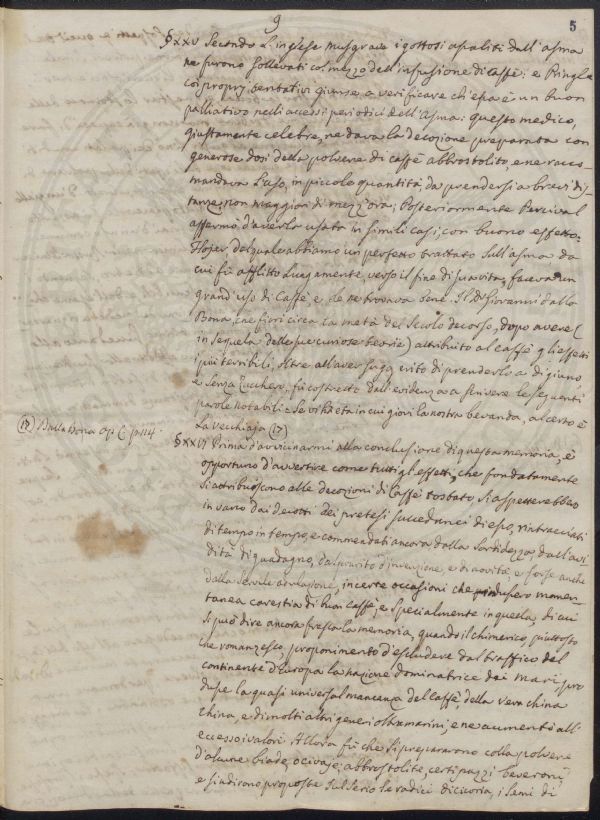 9
5
§XXV Secondo l'inglese Musgrave i gottosi assaliti dall'asma
ne furono sollevati col mezzo dell'infusione di Caffè: e Pringle
coi proprj tentativi giunse a verificare ch'essa è un buon
palliativo negli accessi periodici dell'Asma: questo medico,
giustamente celebre, ne dava la decozione preparata con
generose dosi della polvere di caffè abbrostolito, e ne racco-
mandava l'uso, in piccole quantità da prendersi a brevi dis-
tanze, non maggiori di mezz'ora; Posteriormente Percival
affermò d'averla usata in simili casi, con buono effetto.
Flojer, del quale abbiamo un perfetto trattato sull'asma da
cui fu afflitto lungamente, verso il fine di sua vita, faceva un
grand'uso di Caffè, e se ne trovava bene. Il Dr Giovanni dalla
Bona, che fiorì circa la metà del secolo decorso, dopo avere (
in sequela delle sue curiose teorie) attribuito al caffè gli effetti
i più terribili, oltre all'aver suggerito di prenderlo a digiuno
e senza zucchero, fu costretto dall'evidenza a scrivere le seguenti
parole notabili: se vi ha età in cui giovi la nostra bevanda, al certo è
la vecchiaja (17)
(17) Dalla Bona Op. C. p. 114.
§XXVI Prima d'avvicinarmi alla conclusione di questa memoria, è
opportuno d'avvertire come tutti gli effetti, che fondatamente
si attribuiscono alle decozioni di Caffè tostato si aspetterebbero
in vano dai decotti dei pretesi succedanei di esso, rintracciati
di tempo in tempo, e commendati ancora dalla sordidezza dall'avi
dità di guadagno, da spirito d'invenzione, e di novità, e forse anche
dalla servile adulazione, in certe occasioni che produssero momen-
tanea carestia di buon caffè; e specialmente in quella, di cui
si può dire ancora fresca la memoria, quando il chimerico, piuttosto
che romanzesco, proponimento d'escludere dal traffico del
continente d'Europa la nazione dominatrice dei mari, pro
dusse la quasi universal mancanza del caffè, della vera china
china, e di molti altri generi oltramarini, e ne aumentò all'
eccesso i valori. Allora fu che si prepararono colla polvere
d'alcune biade, o civaje, abbrostolite, certi pazzi beveroni,
e si udirono proposte sul serio le radici di cicoria, i semi di